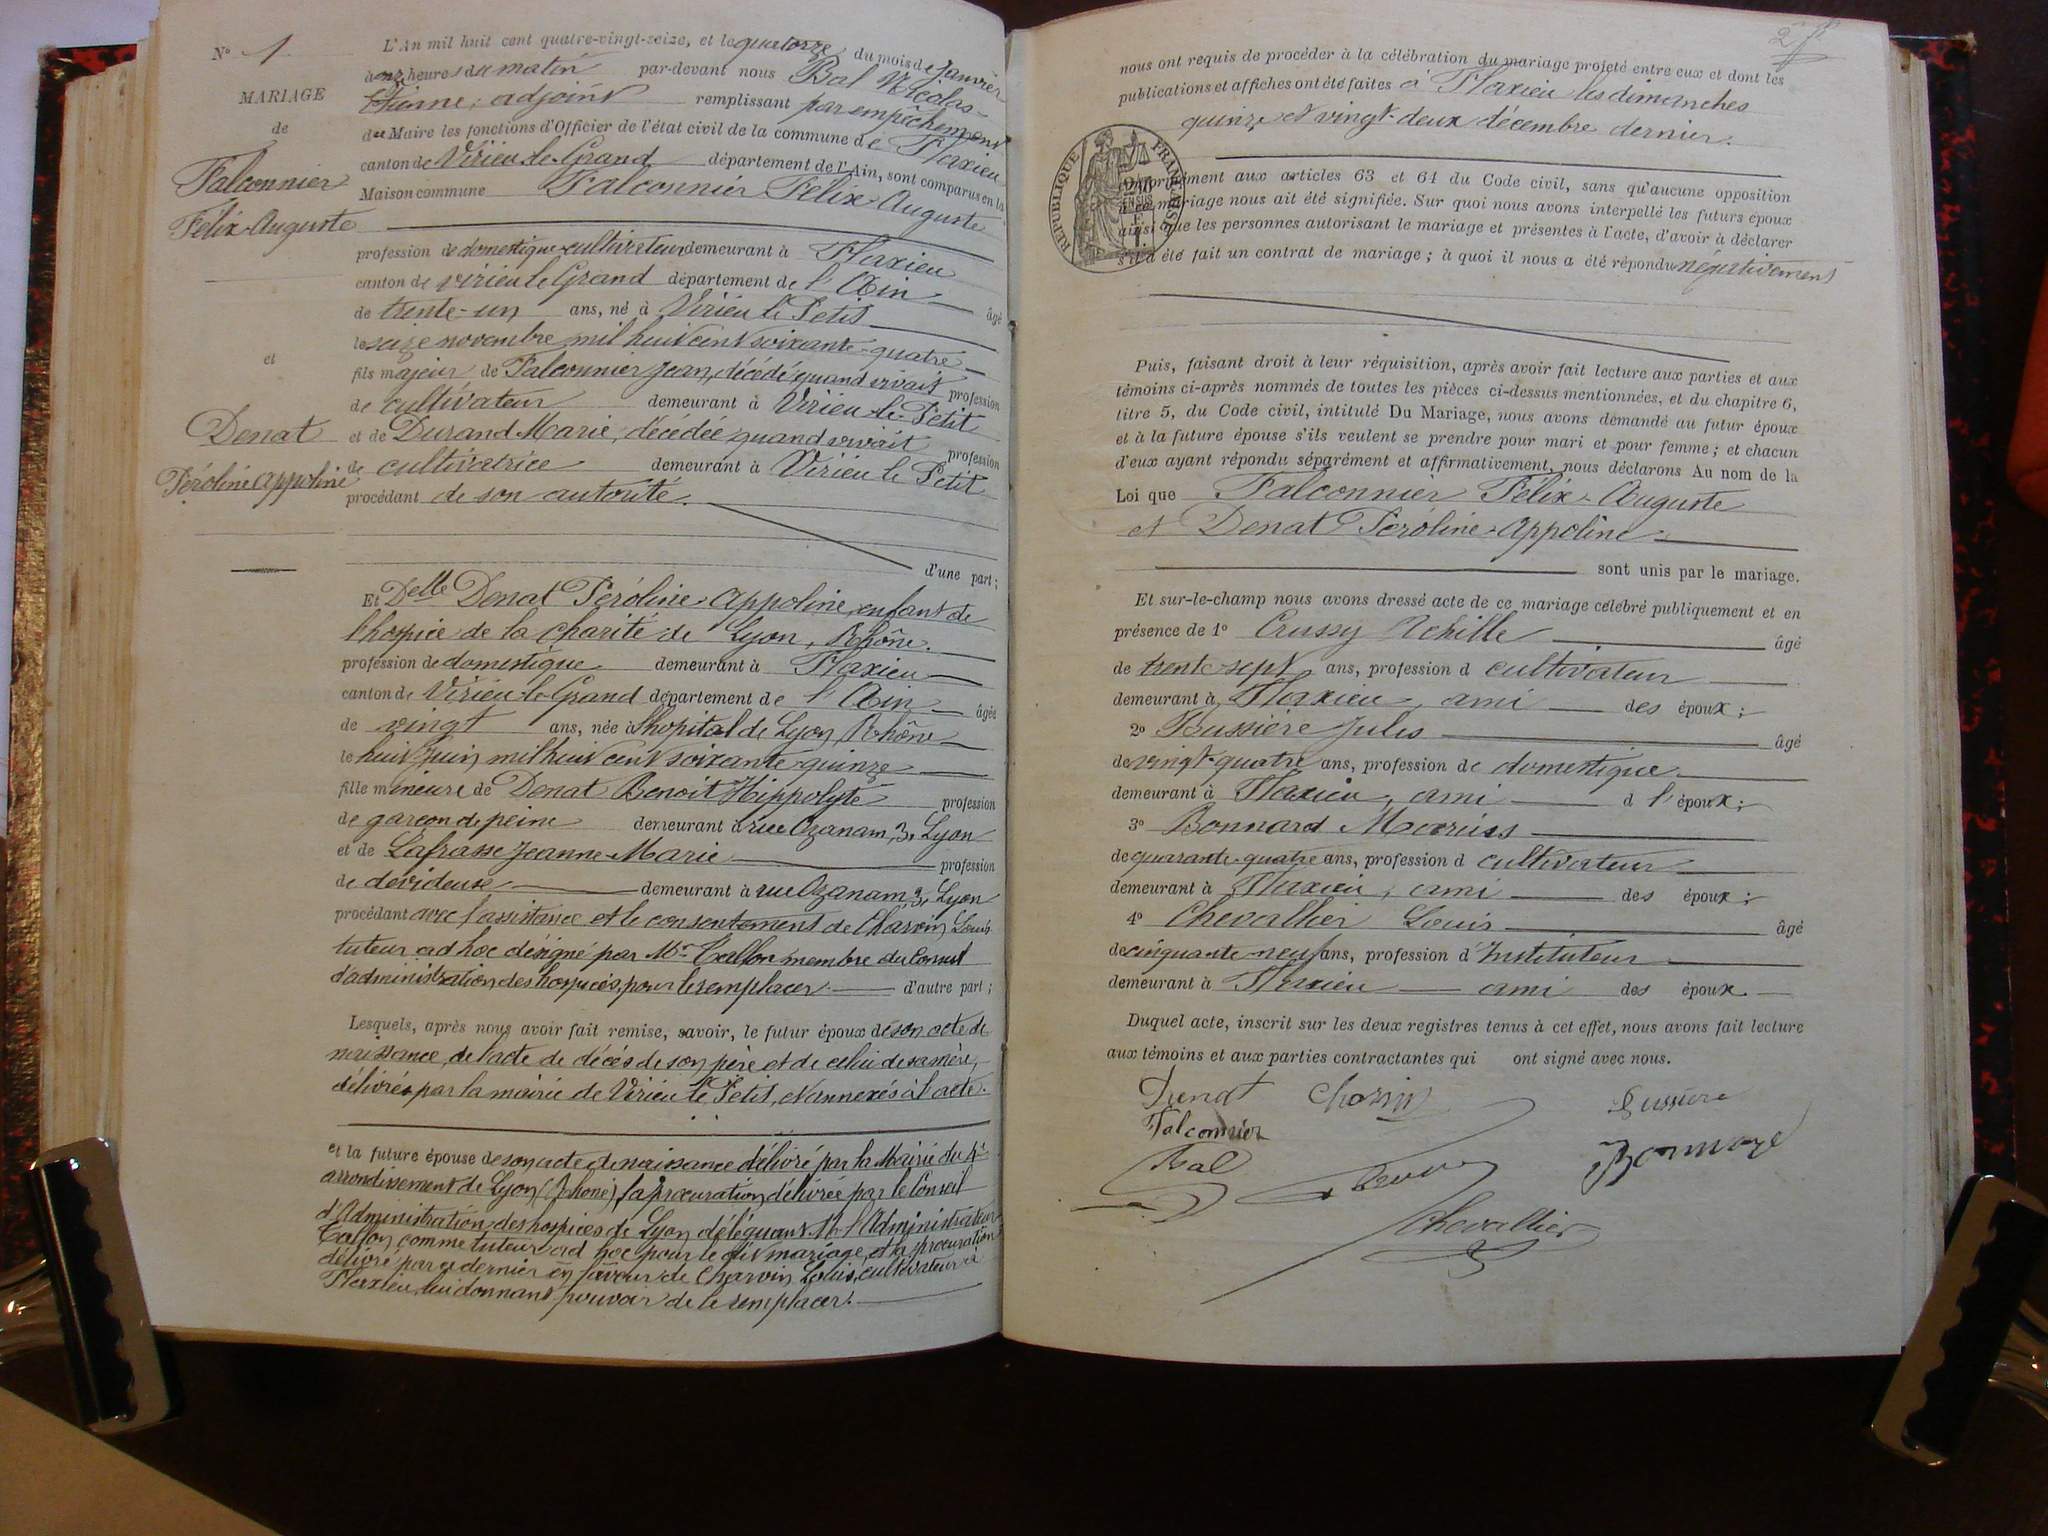 N° 1
MARIAGE
de
Falconnier
Félix-Auguste
et
Denat
Péroline Appoline
L'An mil huit cent quatre-vingt-seize, et le quatorze du mois de janvier
à onze heures du matin par-devant nous Bal Nicolas-
Etienne, adjoint remplissant par empêchement
du Maire les fonctions d'Officier de l'état civil de la commune de Flaxieu
canton de Virieu-le-Grand département de l'Ain, sont comparus en la
Maison commune Falconnier Félix-Auguste
profession de domestique-cultivateur demeurant à Flaxieu
canton de Virieu le Grand département de l'Ain âgé
de trente-un ans, né à Virieu le Petit
le seize novembre mil huit cent soixante-quatre
fils majeur de Falconnier Jean, décédé quand vivait profession
de cultivateur demeurant à Virieu-le-Petit
et de Durand Marie, décédée quand vivait profession
de cultivatrice demeurant à Virieu le Petit
procédant de son autorité.
d'une part;
Et Delle Denat Péroline-Appoline, enfant de
l'hospice de la charité de Lyon, Rhône.
profession de domestique demeurant à Flaxieu
canton de Virieu-le-Grand département de l'Ain âgée
de vingt ans, née à l'hopital de Lyon, Rhône
le huit juin mil huit cent soixante-quinze
fille mineure de Denat Benoit Hippolyte profession
de garçon de peine demeurant à rue Ozanam, 3, Lyon
et de Lafrasse Jeanne-Marie profession
de dévideuse demeurant à rue Ozanam 3, Lyon
procédant avec l'assistance et le consentement de Charvin Louis
tuteur ad hoc désigné par Mr Tallon membre du Conseil
d'administration des hospices, pour le remplacer. d'autre part;
Lesquels, après nous avoir fait remise, savoir, le futur époux de son acte de
naissance, de l'acte de décès de son père et de celui de sa mère,
délivrés par la mairie de Virieu le Petit, et annexés à l'acte.
et la future épouse de son acte de naissance délivré par la Mairie du 4e
arrondissement de Lyon (Rhône) la procuration délivrée par le Conseil
d'Administration des hospices de Lyon déléguant Mr l'Administrateur
Tallon comme tuteur ad hoc pour le dit mariage, et la procuration
délivré par ce dernier en faveur de Charvin Louis, cultivateur à
Flaxieu, lui donnant pouvoir de le remplacer.
nous ont requis de procéder à la célébration du mariage projeté entre eux et dont les
publications et affiches ont été faites à Flaxieu les dimanches
quinze et vingt-deux décembre dernier.
RÉPUBLIQUE FRANÇAISE
Conformément aux articles 63 et 64 du Code civil, sans qu'aucune opposition
à ce mariage nous ait été signifiée. Sur quoi nous avons interpellé les futurs époux
ainsi que les personnes autorisant le mariage et présentes à l'acte, d'avoir à déclarer
s'il a été fait un contrat de mariage; à quoi il nous a été répondu négativement
Puis, faisant droit à leur réquisition, après avoir fait lecture aux parties et aux
témoins ci-après nommés de toutes les pièces ci-dessus mentionnées, et du chapitre 6,
titre 5, du Code civil, intitulé Du Mariage, nous avons demandé au futur époux
et à la future épouse s'ils veulent se prendre pour mari et pour femme; et chacun
d'eux ayant répondu séparément et affirmativement, nous déclarons Au nom de la
Loi que Falconnier Félix-Auguste
et Denat Péroline-Appoline
sont unis par le mariage.
Et sur-le-champ nous avons dressé acte de ce mariage célébré publiquement et en
présence de 1° Crussy Achille âgé
de trente-sept ans, profession d cultivateur
demeurant à Flaxieu, ami des époux;
2° Bussière Jules âgé
de vingt-quatre ans, profession de domestique
demeurant à Flaxieu, ami d l'époux;
3° Bonnard Marius
de quarante-quatre ans, profession d cultivateur
demeurant à Flaxieu, ami des époux;
4° Chevallier Louis âgé
de cinquante-neuf ans, profession d'Instituteur
demeurant à Flaxieu ami des époux
Duquel acte, inscrit sur les deux registres tenus à cet effet, nous avons fait lecture
aux témoins et aux parties contractantes qui ont signé avec nous.
Denat Charvin Bussière
Falconnier
Bal Bonnard
Chevallier